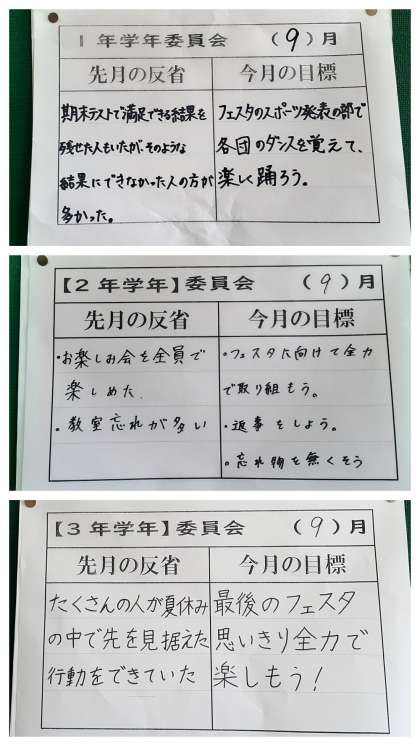 1 年学年委員会 （ 9 ）月
先月の反省
期末テストで満足できる結果を
残せた人もいたが、そのような
結果にできなかった人の方が
多かった。
今月の目標
フェスタのスポーツ発表の部で
各団のダンスを覚えて、
楽しく踊ろう。
【2 年学年】委員会 （ 9 ）月
先月の反省
・お楽しみ会を全員で
楽しめた。
・教室忘れが多い
今月の目標
・フェスタに向けて全力
で取り組もう。
・返事をしよう。
・忘れ物を無くそう
【3 年学年】委員会 （ 9 ）月
先月の反省
たくさんの人が夏休み
の中で先を見据えた
行動をできていた
今月の目標
最後のフェスタ
思いきり全力で
楽しもう！